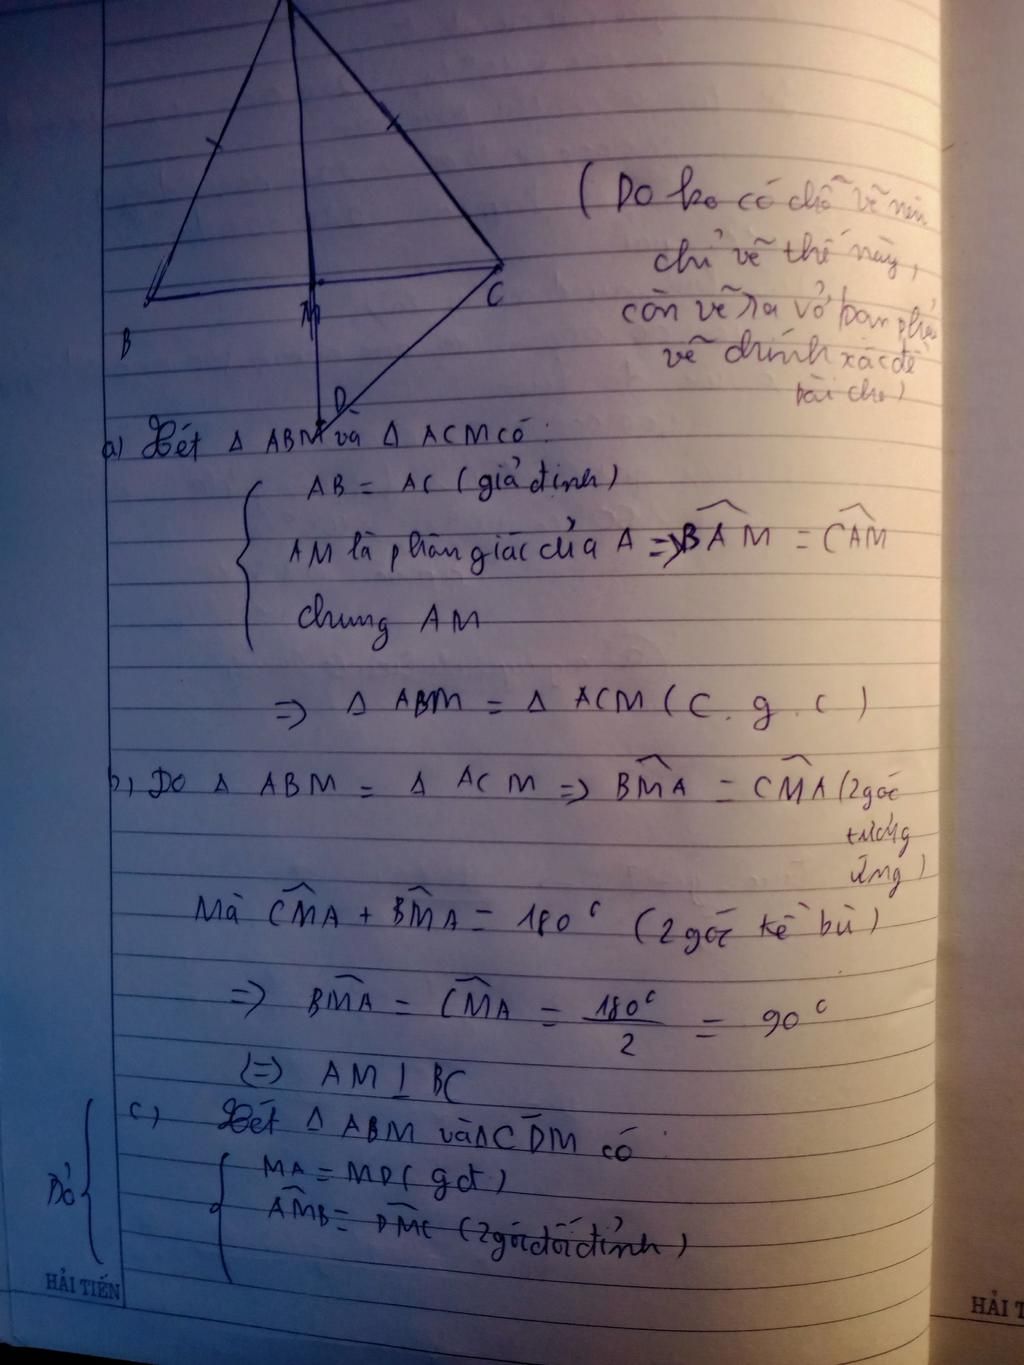 (Do ko có chỗ vẽ nên
chỉ vẽ thế này,
còn vẽ ra vở bạn phải
vẽ chính xác đề
bài cho)
B
M
C
D
a) Xét Δ ABM và Δ ACM có:
AB = AC (giả định)
AM là phân giác của A => BAM̂ = CAM̂
chung AM
=> Δ ABM = Δ ACM (c.g.c)
b) Do Δ ABM = Δ ACM => BMÂ = CMÂ (2 góc
tương
ứng)
Mà CMÂ + BMÂ = 180° (2 góc kề bù)
=> BMÂ = CMÂ = 180°/2 = 90°
(=) AM ⊥ BC
c) Xét Δ ABM và Δ CDM có
Bỏ
MA = MD (gđ)
AMB̂ = DMĈ (2 góc đối đỉnh)
HẢI TIẾN
HẢI T